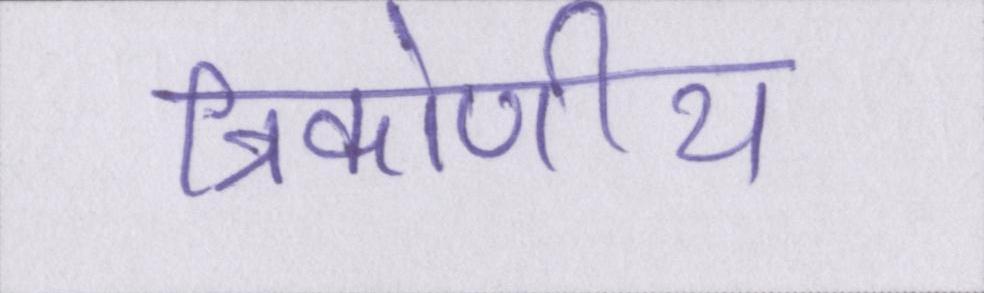 त्रिकोणीय